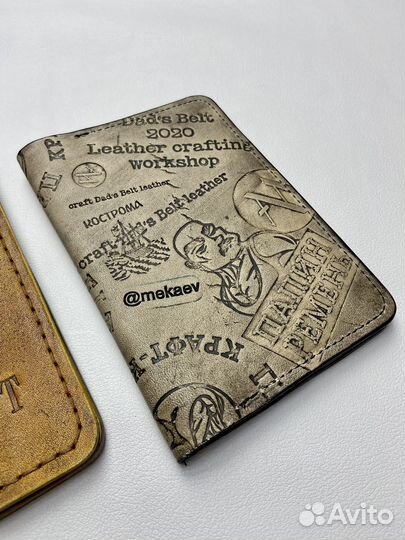 Dad's Belt
2020
Leather crafting
workshop
craft Dad's Belt leather
КОСТРОМА
craft Dad's Belt leather
@mekaev
ПАПИН
РЕМЕНЬ
КРАФТ-К
Avito